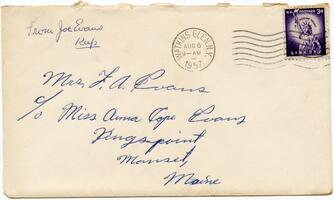 From Joe Evans
WATKINS GLEN, N.Y.
AUG 6
9 - AM
1957
U.S. POSTAGE 3¢
Mrs. F. A. Evans
c/o Miss Anna Cope Evans
Kingspoint
Manset,
Maine